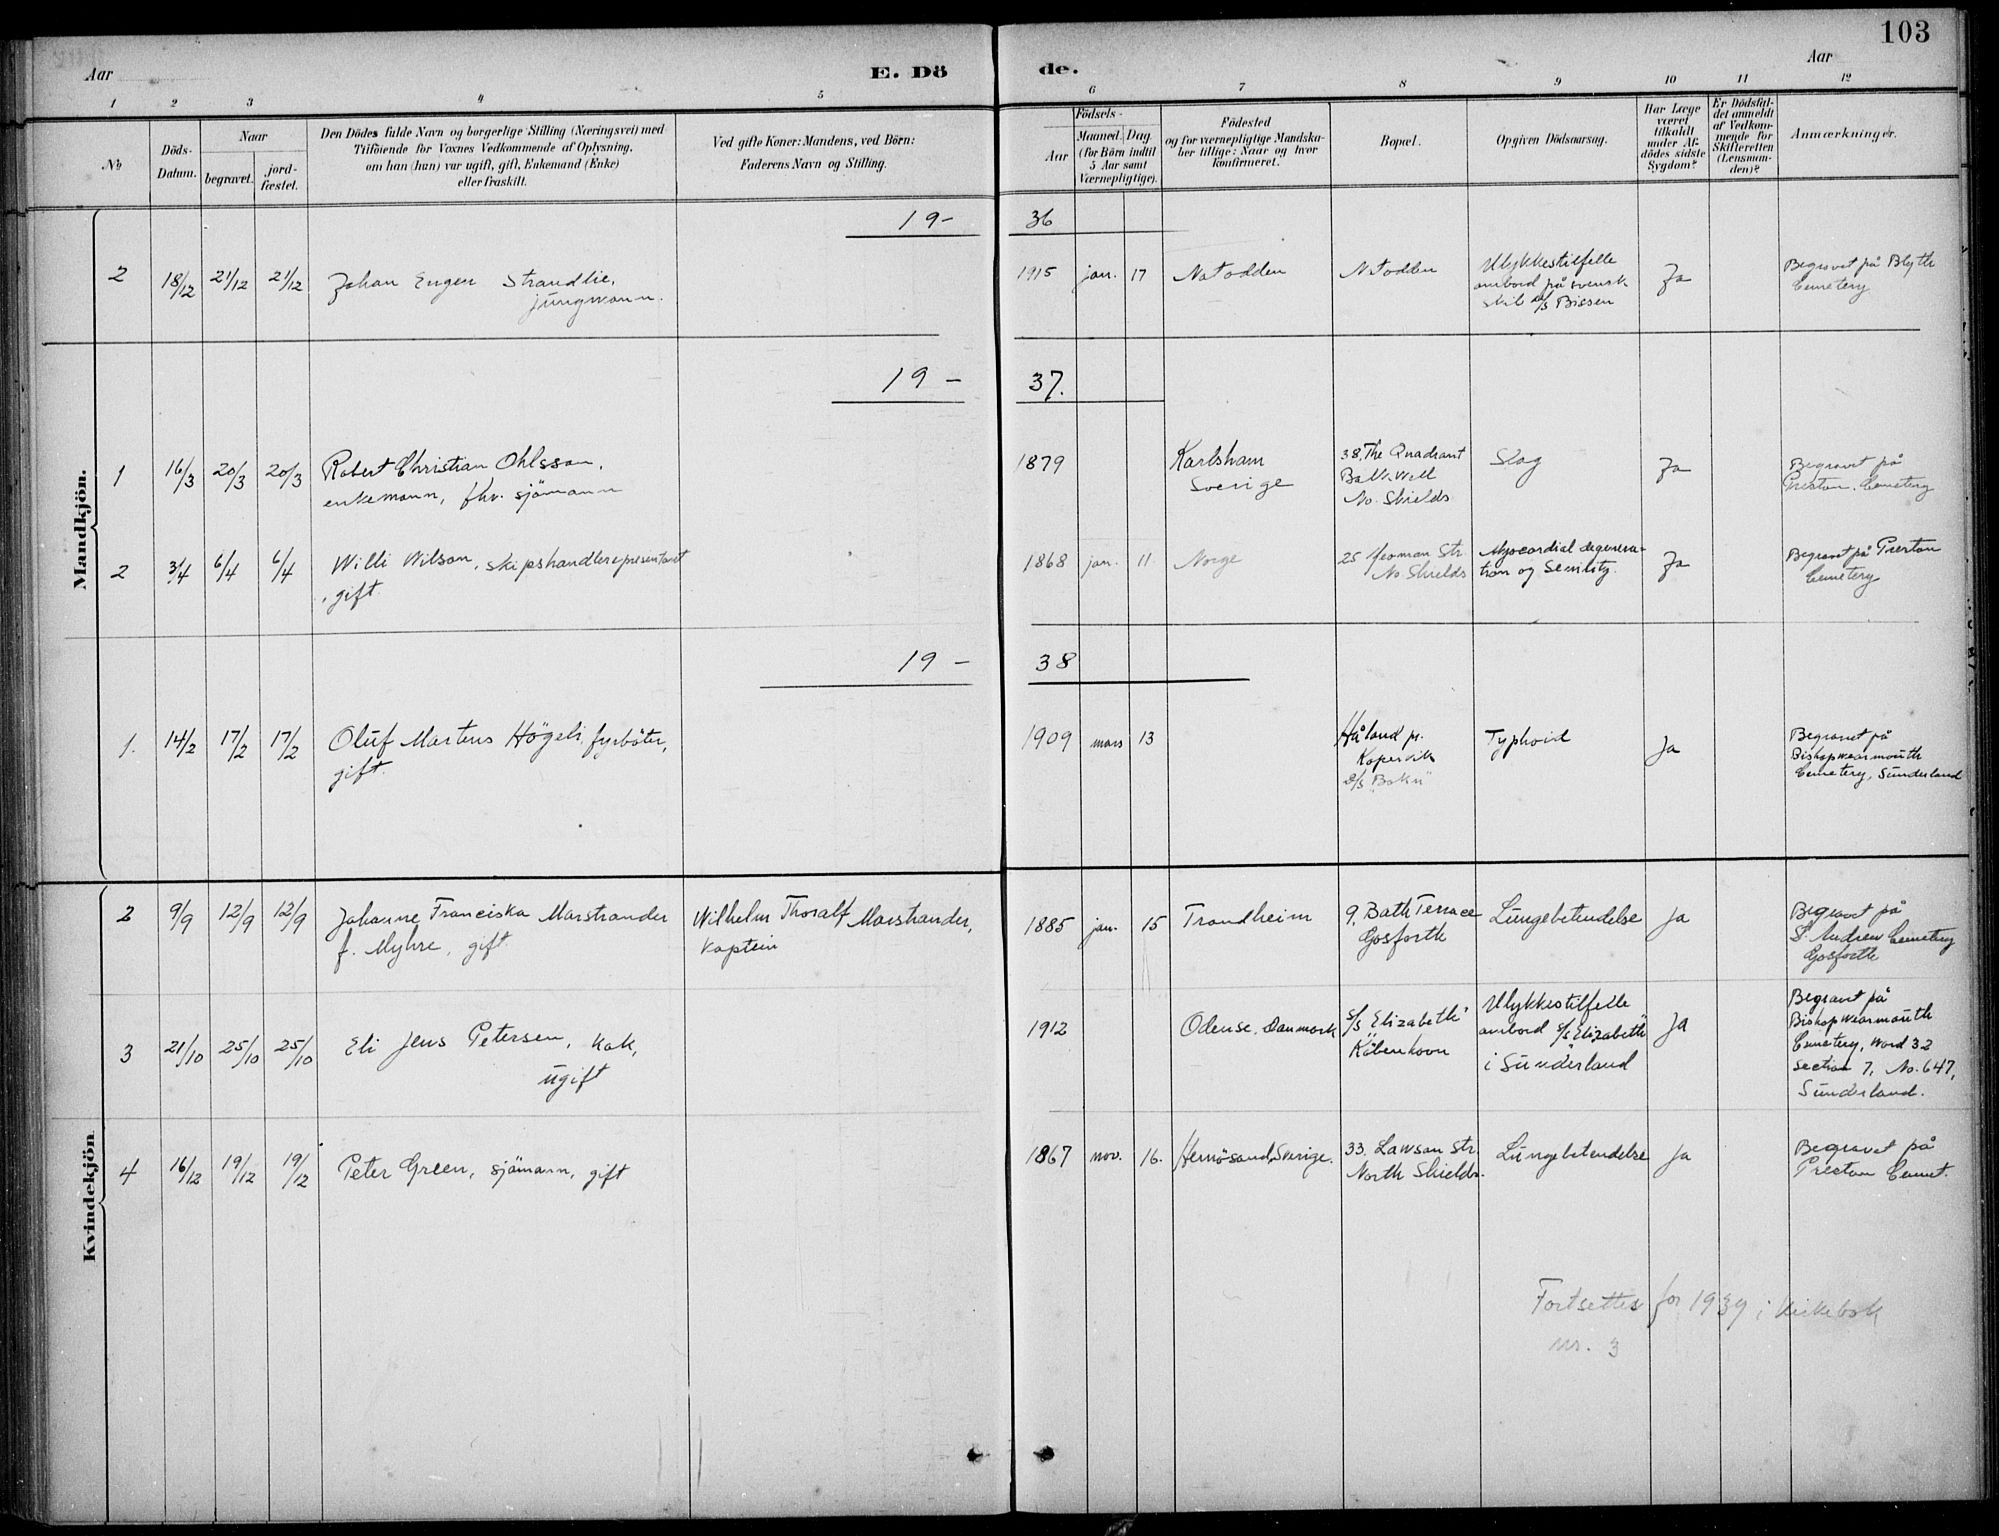 103
Aar
E. Dö
de.
Aar
1 2 3 4 5 6 7 8 9 10 11 12
No
Döds-
Datum.
Naar
begravet.
jord-
fæstet.
Den Dödes fulde Navn og borgerlige Stilling (Næringsvei) med
Tilföiende for Voxnes Vedkommende af Oplysning,
om han (hun) var ugift, gift, Enkemand (Enke)
eller fraskilt.
Ved gifte Koner: Mandens, ved Börn:
Faderens Navn og Stilling.
Födsels-
Aar
Maaned. Dag.
(for Börn indtil
5 Aar samt
Værnepligtige).
Födested
og for værnepligtige Mandska-
ber tillige: Naar og hvor
konfirmeret.
Bopæl.
Opgiven Dödsaarsag.
Har Læge
været
tilkaldt
under Af-
dödes sidste
Sygdom?
Er Dödsfal-
det anmeldt
af Vedkom-
mende for
Skifteretten
(Lensman-
den)?
Anmærkninger.
Mandkjön.
19- 36
2 18/12 21/12 21/12 Johan Engen Strandlie,
jungmann.
1915 jan. 17 Notodden Notodden
Ulykkestilfelle
ombord på svensk
skib D/S Bissen
Ja
Begravet på Blyth
Cemetery
19 - 37.
1 16/3 20/3 20/3 Robert Christian Ohlsson,
enkemann, fhv. sjömann
1879 Karlsham
Sverige
38, The Quadrant
Balkwell
No. Shields
Slag Ja
Begravet på
Preston Cemetery
2 3/4 6/4 6/4 Willi Wilson, skipshandlerepresentant
, gift.
1868 jan. 11. Norge
25 Yeoman Str.
No. Shields
Myocardial degenera-
tion og Senility.
Ja
Begravet på Preston
Cemetery
19 - 38
1. 14/2 17/2 17/2 Oluf Martens Högeli, fyrböter,
gift.
1909 mars 13
Håland pr.
Kopervik
D/S "Baku"
Typhoid Ja
Begravet på
Bishopwearmouth
Cemetery, Sunderland
2 9/9 12/9 12/9 Johanne Franciska Marstrander
f. Myhre, gift
Wilhelm Thoralf Marstrander,
Kaptein
1885 jan. 15 Trondheim
9, Bath Terrace
Gosforth
Lungebetendelse Ja
Begravet på
St. Andrew Cemetery
Gosforth
3 21/10 25/10 25/10 Eli Jens Petersen, kok,
ugift
1912 Odense, Danmark
S/S "Elizabeth"
Köbenhavn
Ulykkestilfelle
ombord S/S "Elizabeth"
i Sunderland
Ja
Begravet på
Bishopwearmouth
Cemetery, Word 32
section 7, No. 647,
Sunderland.
Kvindekjön
4 16/12 19/12 19/12 Peter Green, sjömann, gift
1867 nov. 16. Hernösand, Sverige.
33. Lawson Str.
North Shields.
Lungebetendelse Ja
Begravet på
Preston Cemet.
Fortsettes for 1939 i kirkebok
nr. 3